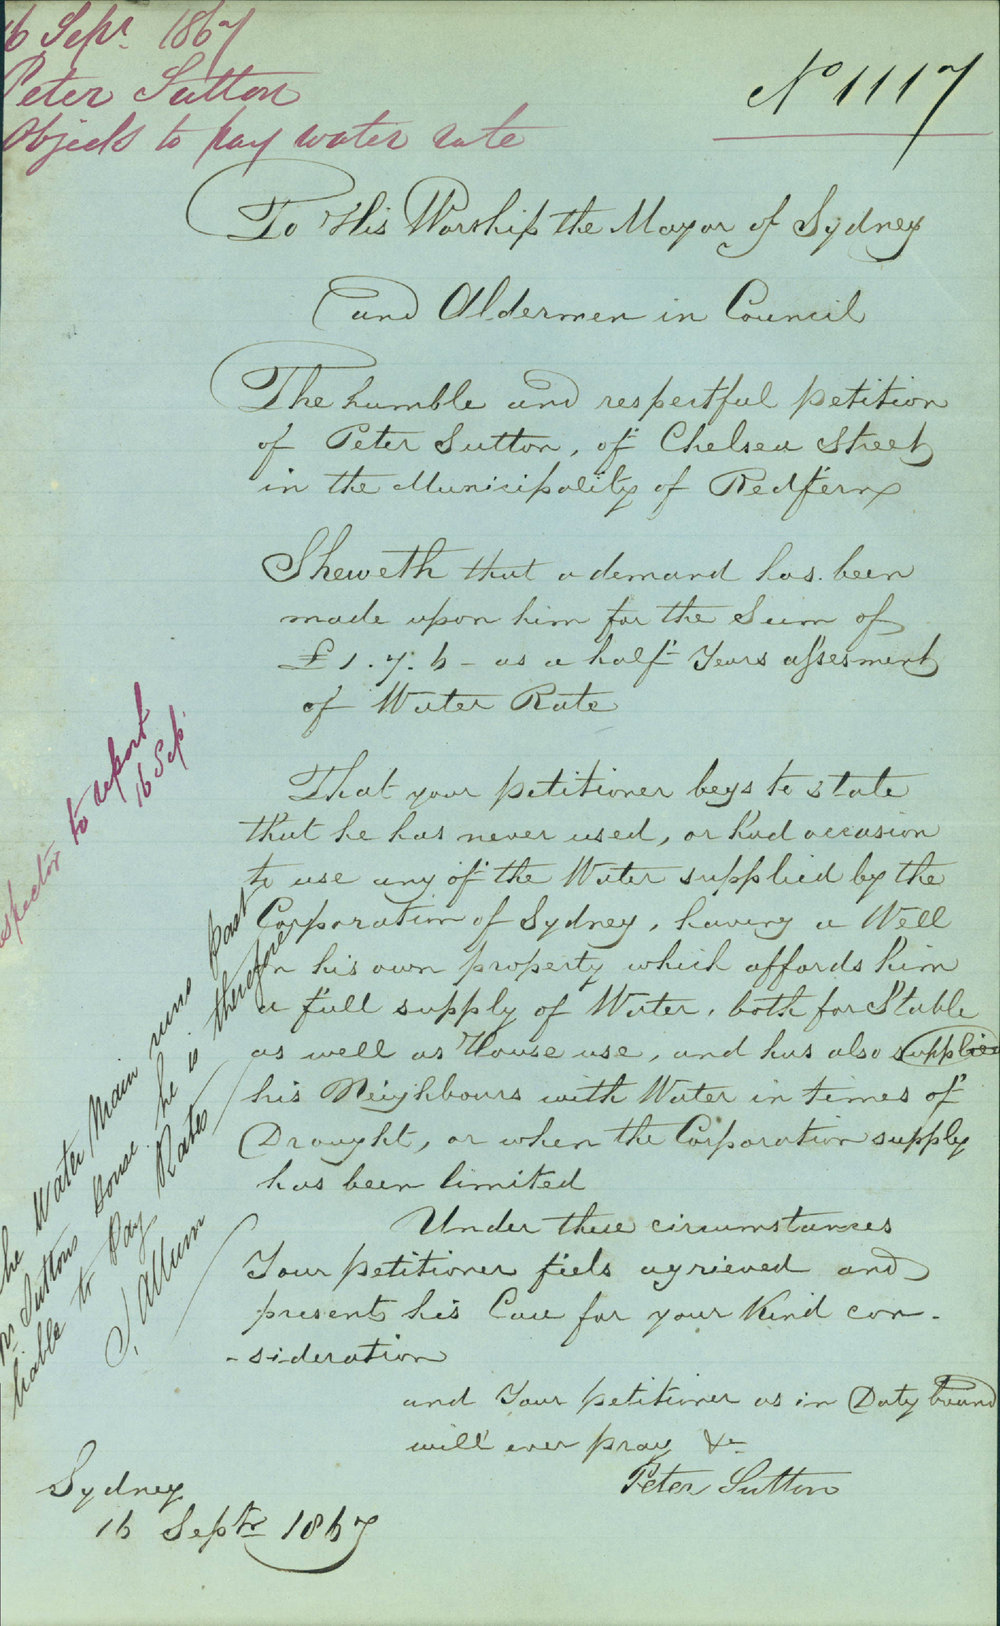 16 Sepr. 1867
Peter Sutton
Objects to pay water rate
No 1117
To His Worship the Mayor of Sydney
and Aldermen in Council
The humble and respectful petition
of Peter Sutton, of Chelsea Street
in the Municipality of Redfern
Sheweth that a demand has been
made upon him for the Sum of
£1.7.6 - as a half Years assesment
of Water Rate
That your petitioner begs to state
that he has never used, or had occasion
to use any of the Water supplied by the
Corporation of Sydney, having a Well
on his own property which affords him
a full supply of Water, both for Stable
as well as House use, and has also supplied
his Neighbours with Water in times of
Drought, or when the Corporation supply
has been limited
Under these circumstances
Your petitioner feels agrieved and
presents his Case for your Kind con-
-sideration
and Your petitioner as in Duty bound
will ever pray &c
Peter Sutton
Sydney
16 Septr 1867
spector to report
16 Sep.
he Water Main runs past
Mr Suttons House he is therefore
liable to Pay Rates
J. Allum